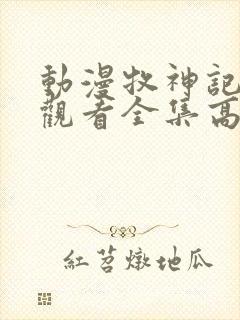 動漫牧神記
觀看全集高
紅苕燉地瓜